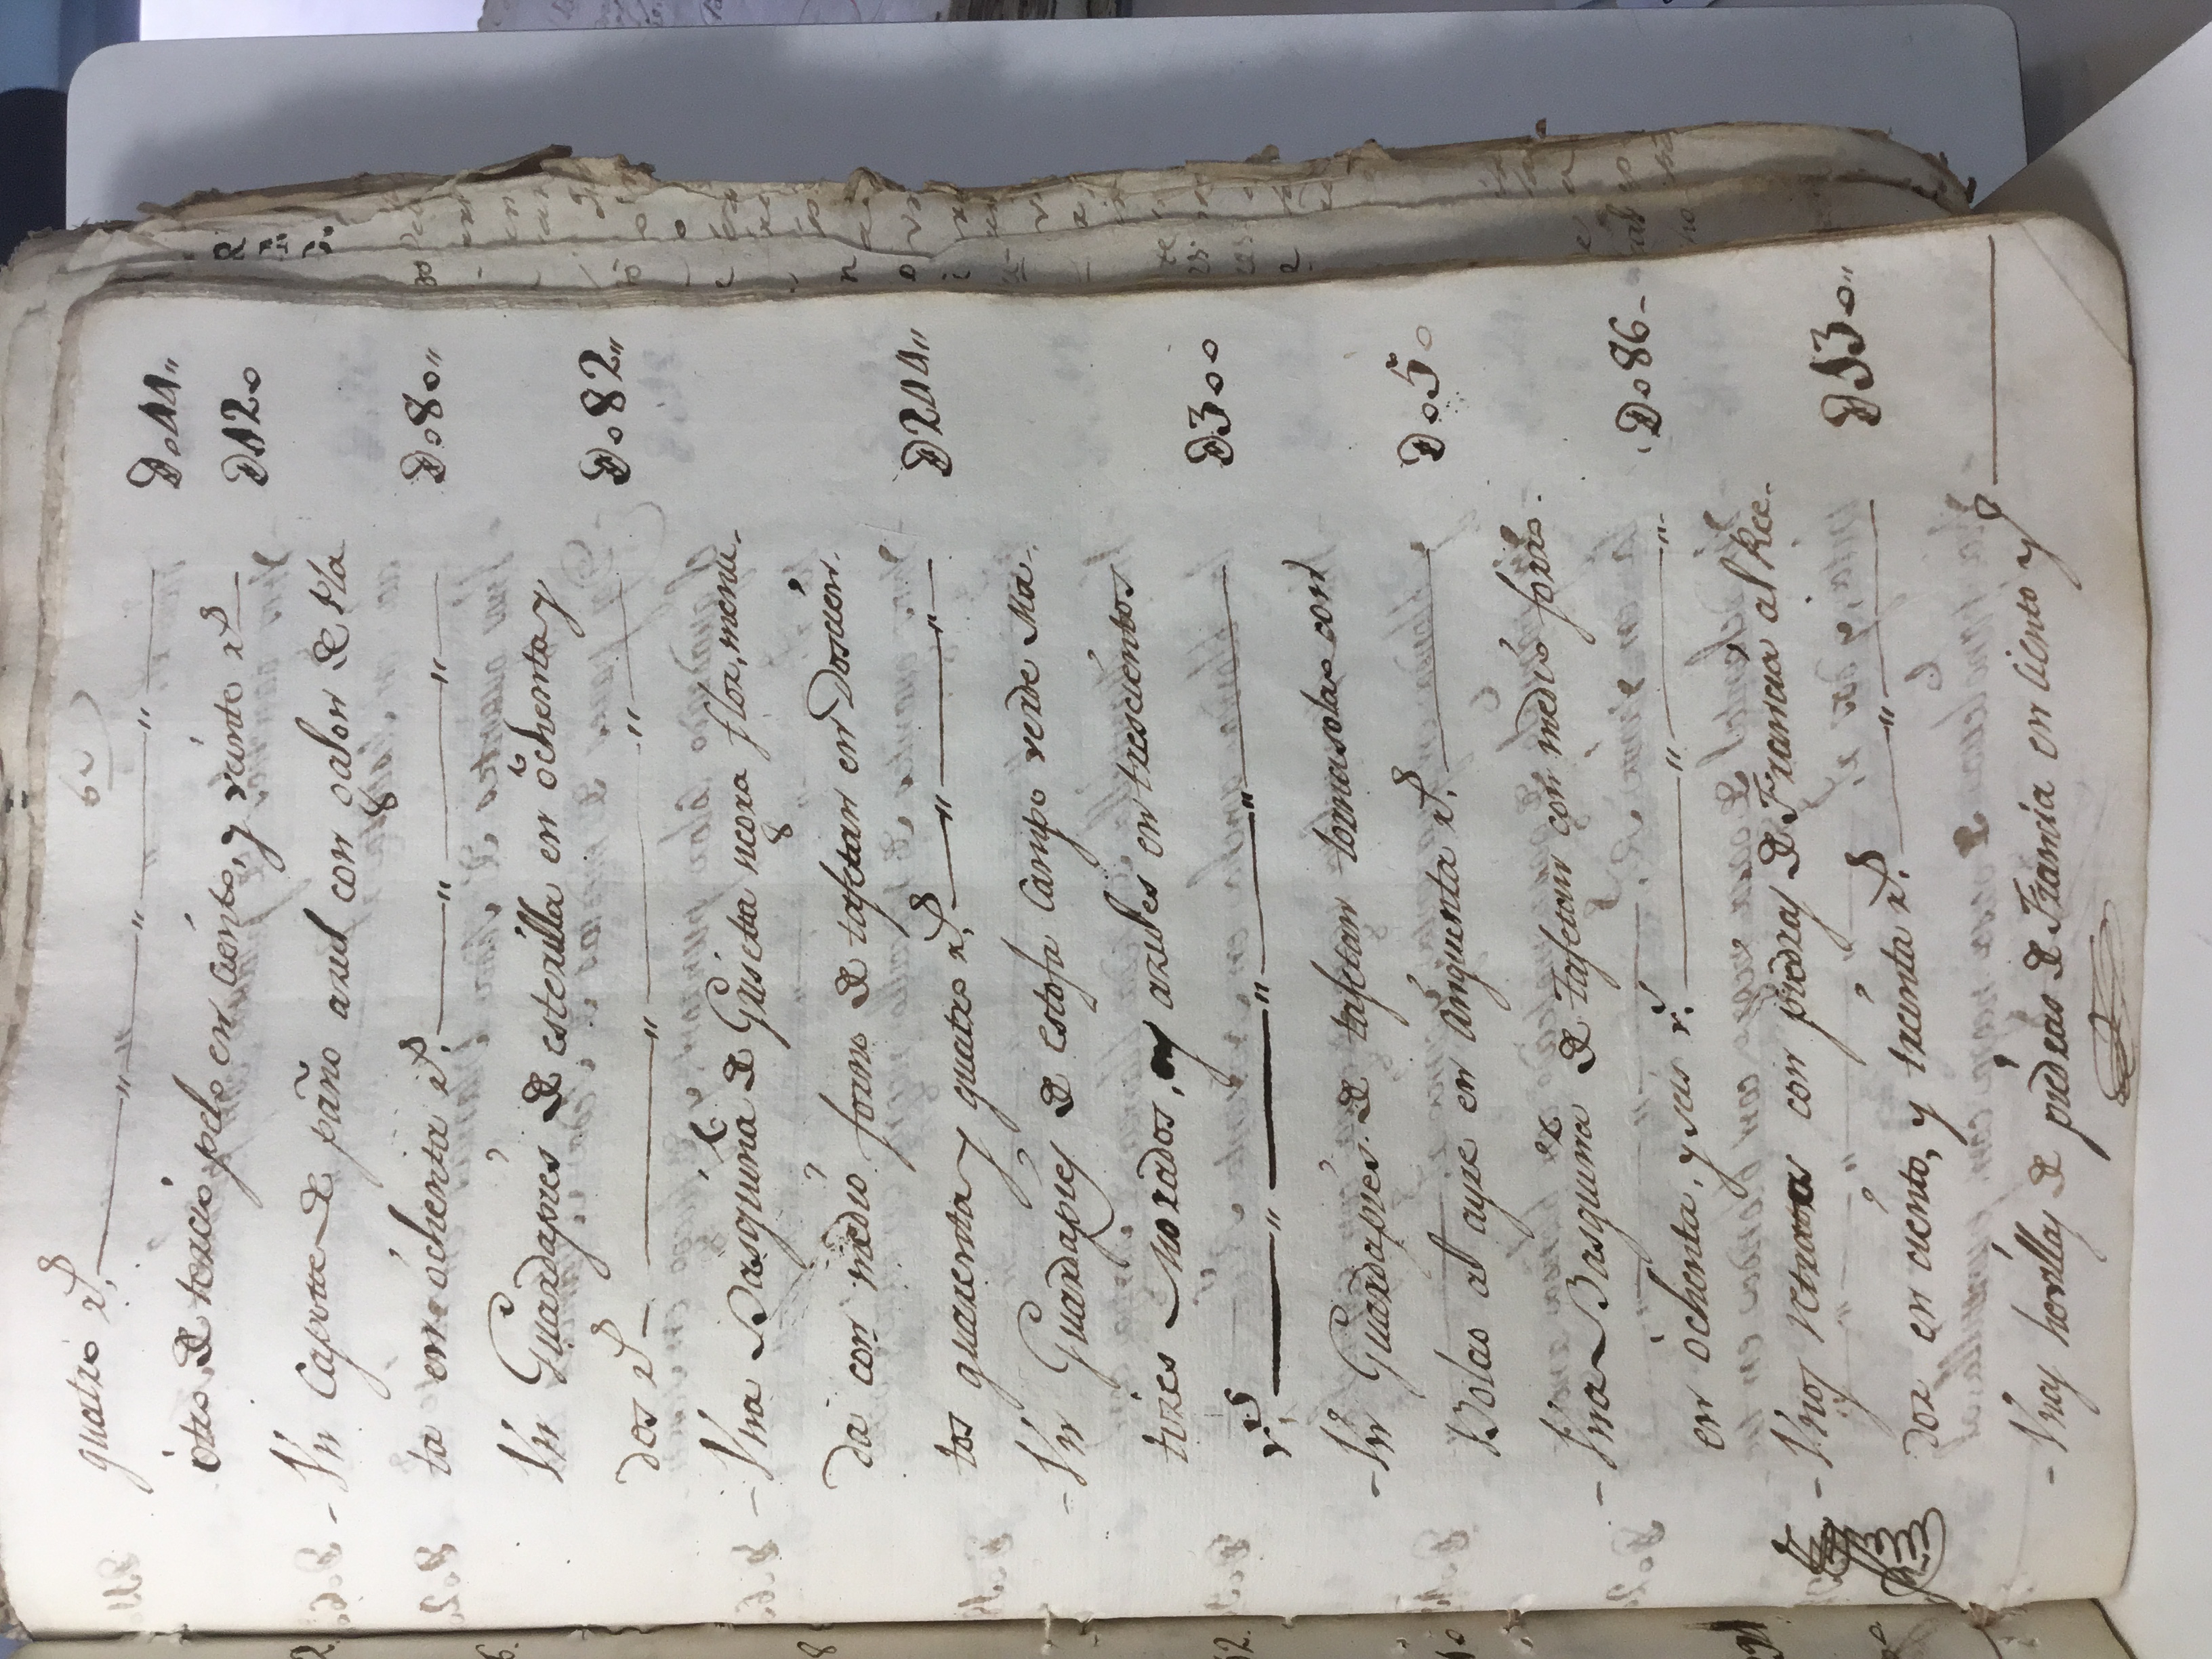 quatro rs. D.044
otro de tercio pelo en ciento, y veinte rs D120
- Vn Capote de paño azul con galon de pla
ta en ochenta rs. D.080
Vn Guardapies de esterilla en ochenta y
dos rs D.082
- Vna Basquiña de Griseta negra flor, menu-
da con medio forro de tafetan en Doscien-
tos quarenta y quatro rs. D244
- Vn Guardapies de estofa Campo verde Ma-
tizes Morados, y azules en trescientos
rs. D300
- Vn Guardapies de tafetan tornasolas con
Bolas al ayre en cinquenta rs. D.050
- Vna Basquiña de tafetan con medio forro
en ochenta, y seis rs. D.086-
- Vnos retratos con piedras de Francia al Rce-
dor en ciento, y treinta rs. D130
- Vnas hevillas de piedras de Francia en ciento y